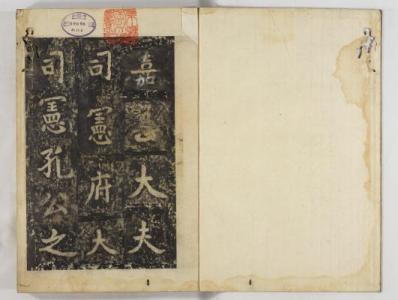 嘉大夫
司憲府大
司憲孔公之